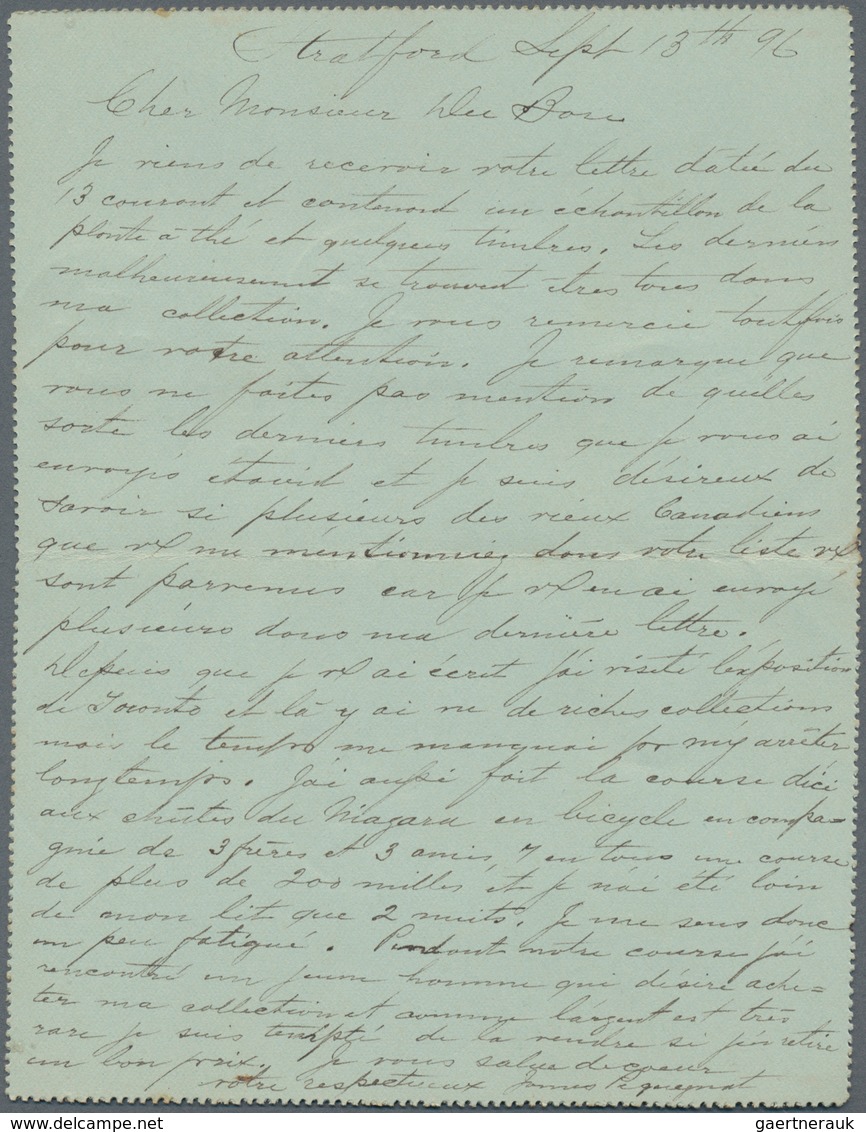 Stratford Sept 13th 96
Cher Monsieur
Je viens de recevoir votre lettre datée du
13 courant et contenant un échantillon de la
plante à thé et quelques timbres. Les derniers
malheureusement se trouvent êtres tous dans
ma collection. Je vous remercie toutefois
pour votre attention. Je remarque que
vous ne faites pas mention de quelles
sorte les derniers timbres que je vous ai
envoyés étaient et je suis désireux de
savoir si plusieurs des vieux Canadiens
que vs me mentionniez dans votre liste vs
sont parvenus car je vs en ai envoyé
plusieurs dans ma dernière lettre.
Depuis que je vs ai écrit j'ai visité l'exposition
de Toronto et là y ai vu de riches collections
mais le temps me manquai pr m'y arrêter
longtemps. J'ai aussi fait la course d'ici
aux chûtes du Niagara en bicycle en compa=
gnie de 3 frères et 3 amis, 7 en tous une course
de plus de 200 milles, et je n'ai été loin
de mon lit que 2 nuits. Je me sens donc
un peu fatigué. Pendant notre course j'ai
rencontré un jeune homme qui désire ache=
ter ma collection et comme l'argent est très
rare je suis tempté de la vendre si j'en retire
un bon prix. Je vous salue de coeur
votre respectueux James Pequegnat
gaertnerauk